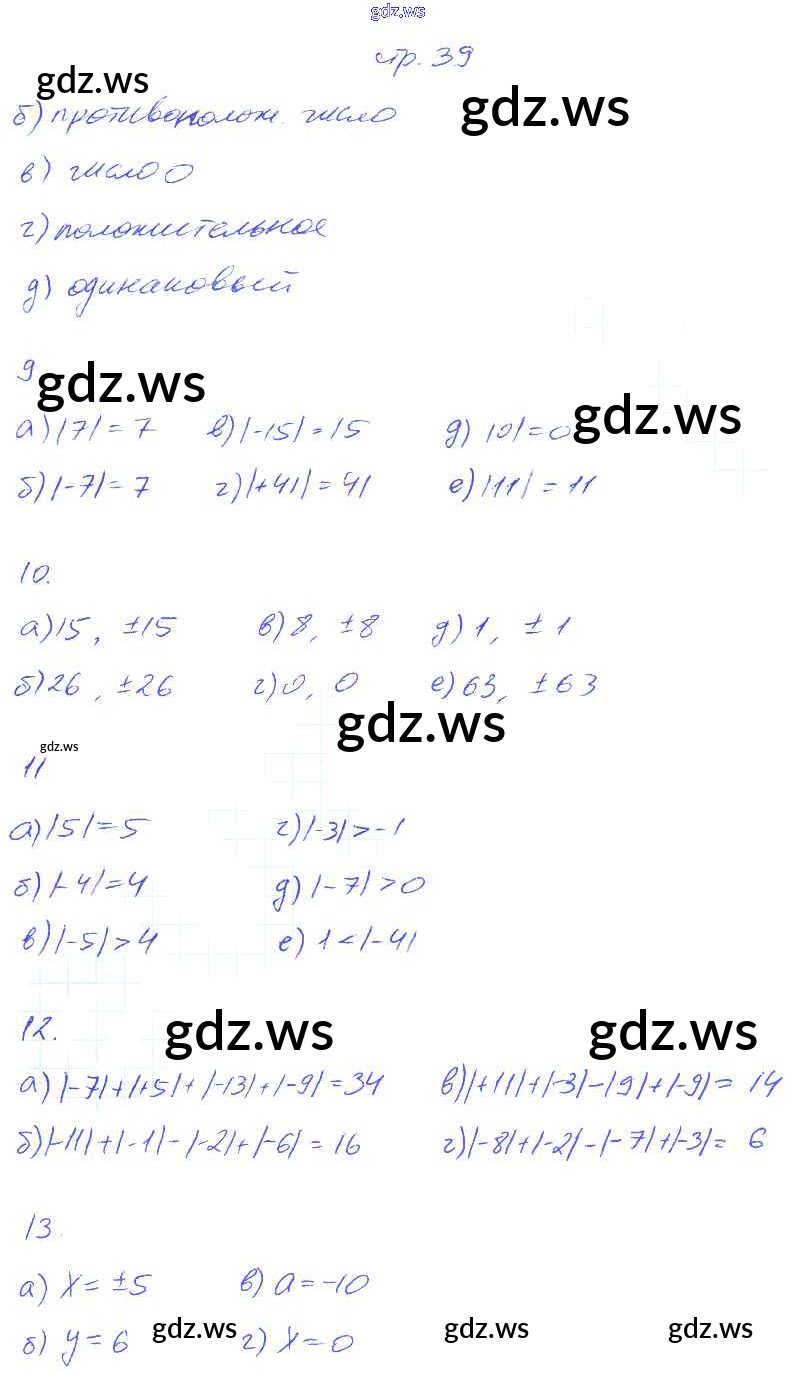 gdz.ws
стр. 39
gdz.ws
б) противополож. число gdz.ws
в) число 0
г) положительное
д) одинаковый
9 gdz.ws
gdz.ws
а) |7| = 7 в) |-15| = 15 д) |0| = 0
б) |-7| = 7 г) |+41| = 41 е) |11| = 11
10.
а) 15, ±15 в) 8, ±8 д) 1, ±1
б) 26, ±26 г) 0, 0 е) 63, ±63
gdz.ws
gdz.ws
11
а) |5| = 5 г) |-3| > -1
б) |-4| = 4 д) |-7| > 0
в) |-5| > 4 е) 1 < |-4|
12. gdz.ws gdz.ws
а) |-7| + |+5| + |-13| + |-9| = 34 в) |+11| + |-3| - |9| + |-9| = 14
б) |-11| + |-1| - |-2| + |-6| = 16 г) |-8| + |-2| - |-7| + |-3| = 6
13.
а) x = ±5 в) a = -10
б) y = 6 gdz.ws г) x = 0 gdz.ws gdz.ws